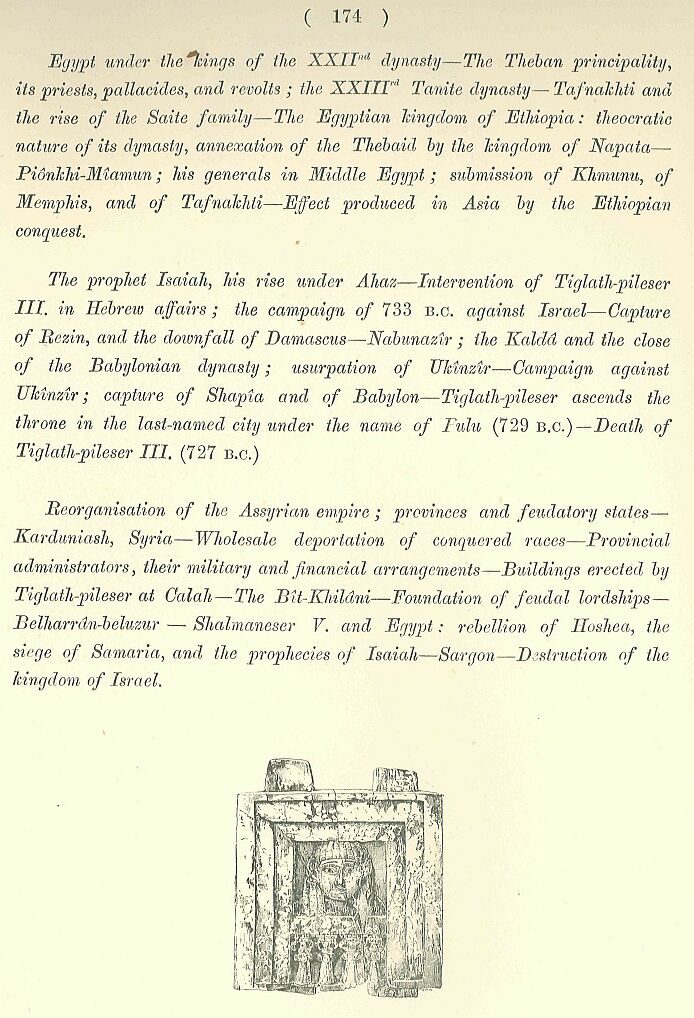 ( 174 )
Egypt under the kings of the XXIInd dynasty—The Theban principality,
its priests, pallacides, and revolts ; the XXIIIrd Tanite dynasty—Tafnakhti and
the rise of the Saite family—The Egyptian kingdom of Ethiopia : theocratic
nature of its dynasty, annexation of the Thebaid by the kingdom of Napata—
Piônkhi-Mîamun ; his generals in Middle Egypt ; submission of Khmunu, of
Memphis, and of Tafnakhti—Effect produced in Asia by the Ethiopian
conquest.
The prophet Isaiah, his rise under Ahaz—Intervention of Tiglath-pileser
III. in Hebrew affairs ; the campaign of 733 B.C. against Israel—Capture
of Rezin, and the downfall of Damascus—Nabunazîr ; the Kaldâ and the close
of the Babylonian dynasty ; usurpation of Ukînzîr—Campaign against
Ukînzîr ; capture of Shapîa and of Babylon—Tiglath-pileser ascends the
throne in the last-named city under the name of Pulu (729 B.C.)—Death of
Tiglath-pileser III. (727 B.C.)
Reorganisation of the Assyrian empire ; provinces and feudatory states—
Karduniash, Syria—Wholesale deportation of conquered races—Provincial
administrators, their military and financial arrangements—Buildings erected by
Tiglath-pileser at Calah—The Bît-Khilâni—Foundation of feudal lordships—
Belharrân-beluzur — Shalmaneser V. and Egypt : rebellion of Hoshea, the
siege of Samaria, and the prophecies of Isaiah—Sargon—Destruction of the
kingdom of Israel.